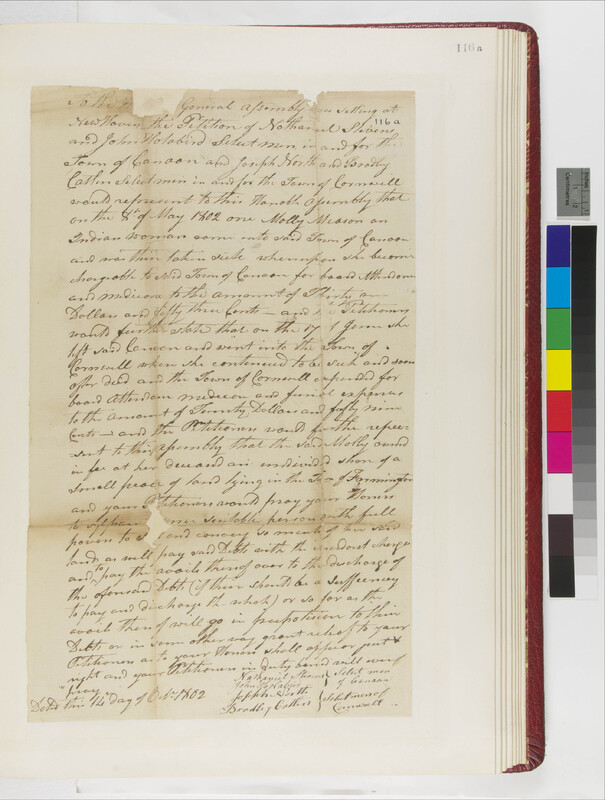 116a
To the General Assembly now setting at
New Haven the Petition of Nathaniel Stevens
116a
and John Holabird Select men in and for the
Town of Canaan and Joseph North and Bradley
Catlin Select men in and for the Town of Cornwall
would represent to this Honorble Assembly that
on the 8th of May 1802 one Molly Meason an
Indian woman came into said Town of Canaan
and was then taken sick whereupon she became
chargeable to said Town of Canaan for board Attendance
and medicine to the amount of Thirty
Dollars and fifty three Cents — and Petitioners
would further state that on the 17 of June she
left said Canaan and went into the Town of
Cornwall where she continued to be sick and soon
after died and the Town of Cornwall expended for
board Attendance medicine and funeral expences
to the amount of Twenty Dollars and fifty nine
Cents — and the Petitioners would further repre
sent to this Assembly that the said Molly owned
in fee at her decease an undivided share of a
small peace of land lying in the Town of Farmington
and your Petitioners would pray your Honors
to some suitable person with full
powers to and convey so much of the said
land as will pay said Debts with the incident charges
and to pay the avails thereof over to the discharge of
the aforesaid Debts (if there should be a sufficiency
to pay and discharge the whole) or so far as the
avails thereof will go in preportion to their
Debts or in some other way grant releif to your
Petitioners as to your Honors shall appear just &
right and your Petitioners in duty bound will ever
pray
Dated this 14 day of Octr 1802
Nathaniel Stevens } Select men
John Holabird } of Canaan
Joseph North } Select men of
Bradley Catlin } Cornwall